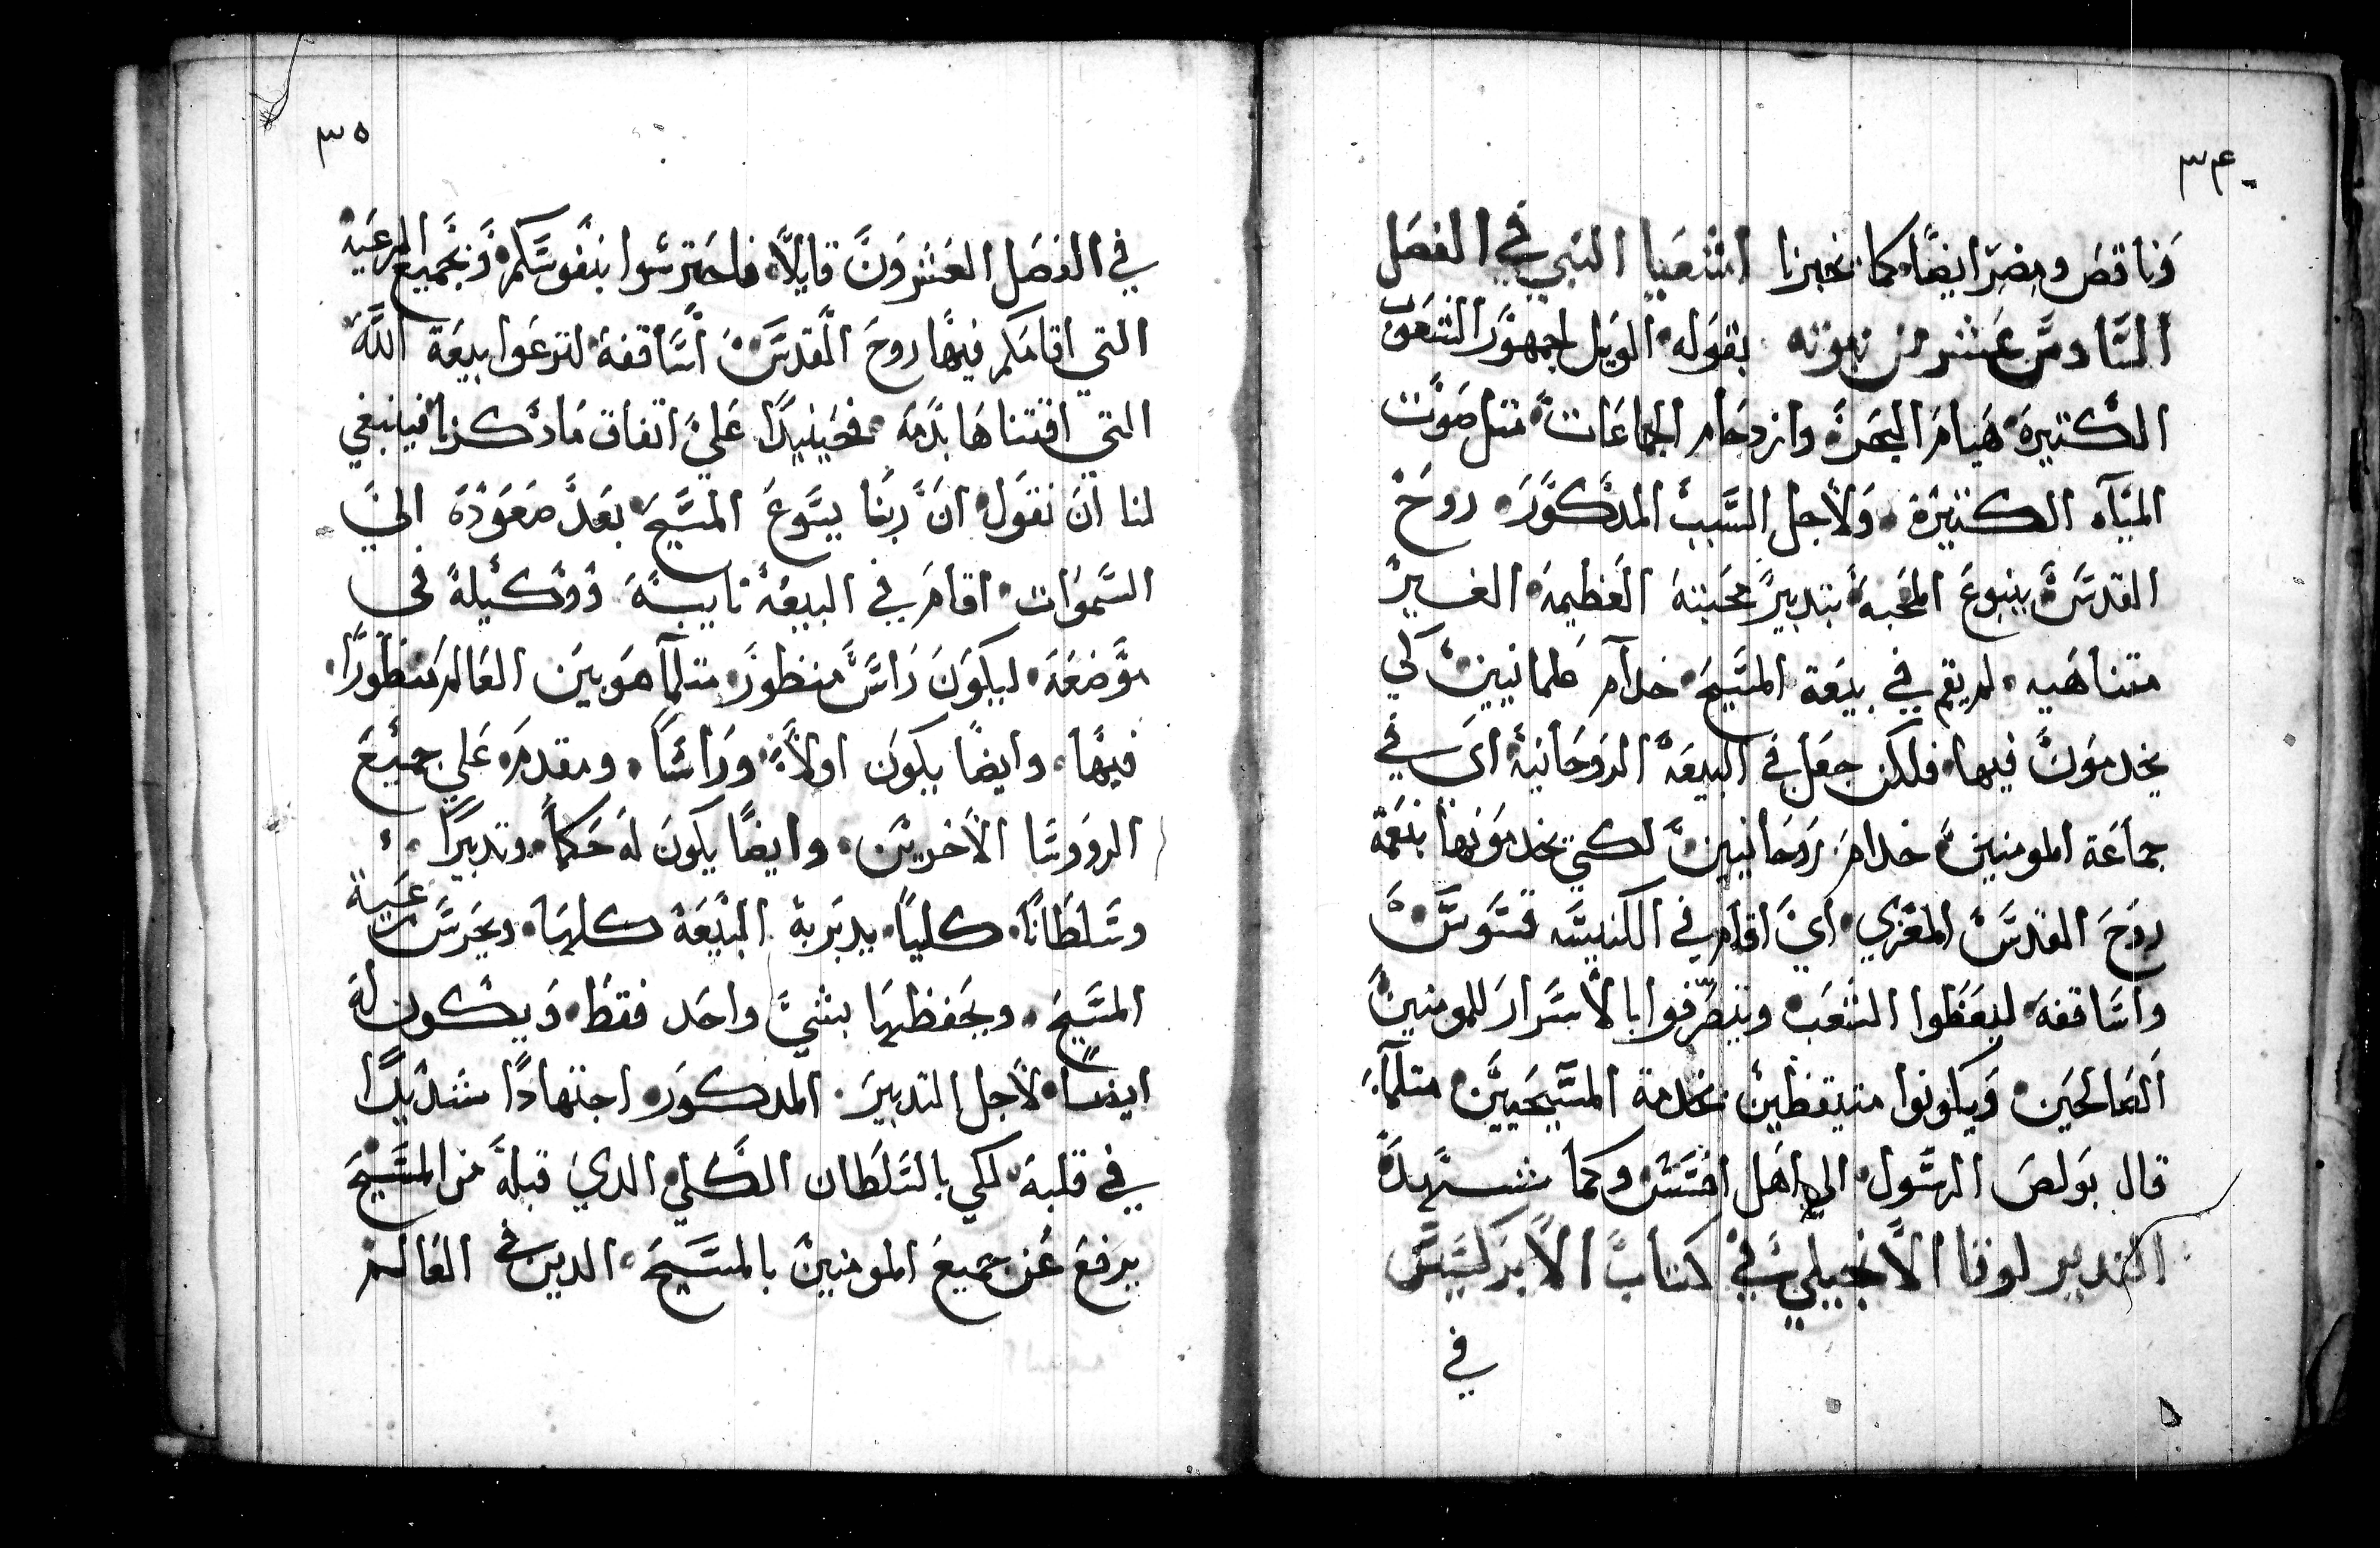 ٣٤
وناقص ومضر ايضًا كما يخبرنا اشعيا النبي في الفصل
السَّادس عشر من نبوته بقوله الويل لجمهور الشعوب
الكثيرة هيام البحر وازدحام الجماعات متل صوت
المياه الكتيرة ولأجل السَّبب المدكور روح
القدس ينبوع المحبة بتدبير محبته العظيمة الغير
متناهيه لم يقم في بيعة المسيح خدام علمانيين لكي
يخدمون فيها فلكن جعل في البيعة الروحانية اي في
جماعة المومنين خدام روحانيين لكي يخدمونها بنعمة
روح القدس المعزي اي اقام في الكنيسه قسوس
واساقفة ليعظوا الشعب ويتصرفوا بالأسرار للمومنين
الصالحين ويكونوا متيقظين بخدمة المسيحيين متلما
قال بولص الرسول الي اهل افسس وكما شهد
القديس لوقا الأنجيلي في كتاب الأبركسيس
في
٣٥
في الفصل العشرون قايلًا فاحترسوا بنفوسكم وبجميع الرعية
التي اقامكم فيها روح القدس أساقفة لترعوا بيعة الله
التي اقتناها بدمه فحينيدًا علي اتفاق مادكرنا فينبغي
لنا ان نقول ان ربنا يسوع المسيح بعد صعوده الي
السموات اقام في البيعة نايبه ووكيله في
موضعه ليكون راس منظور متلما هو بين العالم منظورًا
فيها وايضًا يكون اولاً وراسًا ومقدم علي جميع
الرووسا الأخرين وايضًا يكون له حكماً وتدبيرًا
وسلطانًا كليًا يدبر به البيعة كلها ويحرس رعية
المسيح ويحفظها بشيّ واحد فقط ويكون له
ايضًا لأجل التدبير المدكور اجتهادًا شديدًا
في قلبه لكي بالسلطان الكلي الدي قبله من المسيح
يرفع عن جميع المومنين بالمسيح الدين في العالم